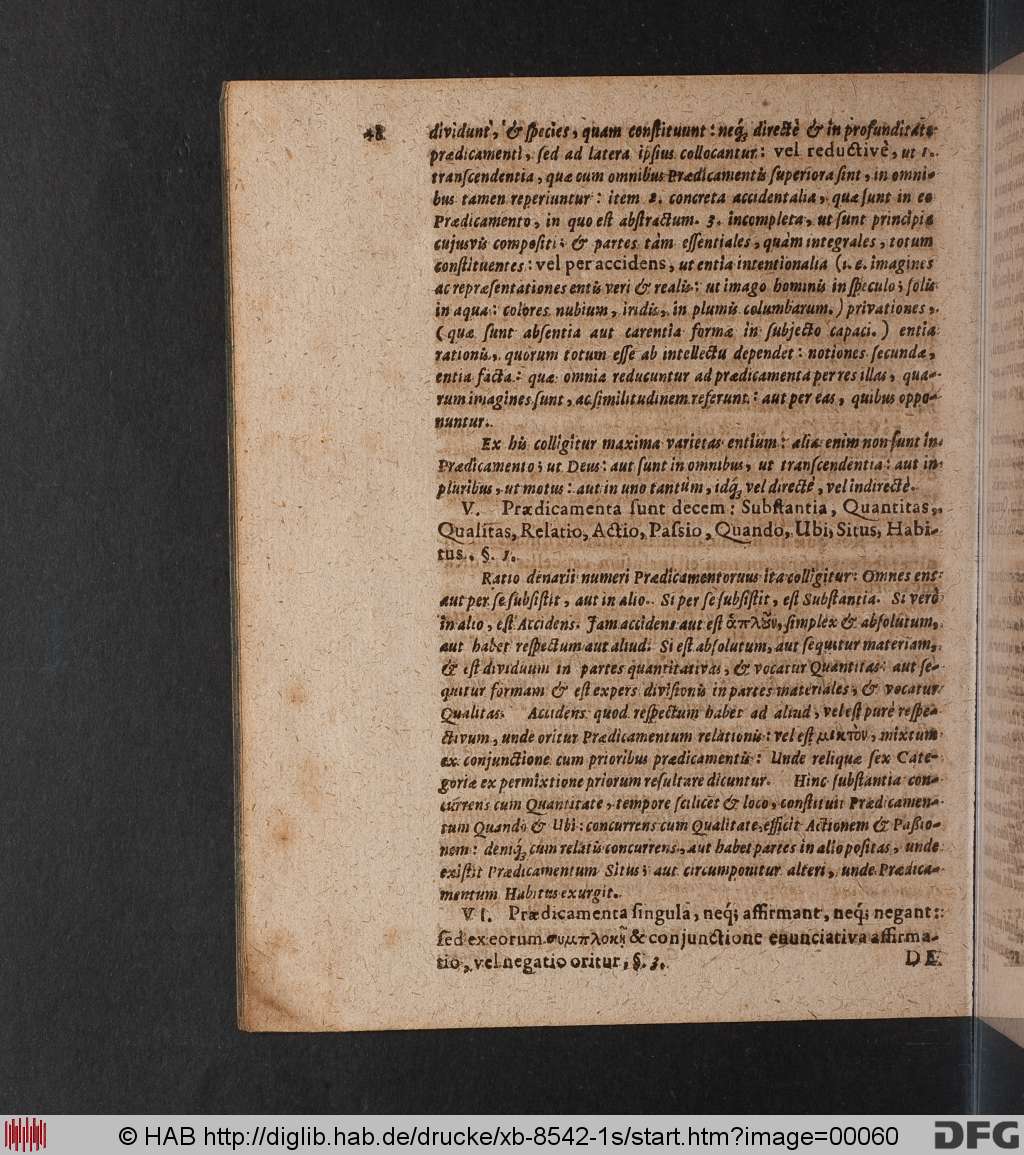 48 dividunt, & ſpecies, quam conſtituunt: neq́; directè & in profunditate
prædicamenti, ſed ad latera ipſius collocantur: vel reductivè, ut 1.
tranſcendentia, quæ cum omnibus Prædicamentis ſuperiora ſint, in omni-
bus tamen reperiuntur: item 2. concreta accidentalia, quæ ſunt in eo
Prædicamento, in quo eſt abſtractum. 3. incompleta, ut ſunt principia
cujusvis compoſiti; & partes tàm eſſentiales, quàm integrales, totum
conſtituentes: vel per accidens, ut entia intentionalia (i. e. imagines
ac repræſentationes entis veri & realis: ut imago hominis in ſpeculo; ſolis
in aqua: colores nubium, iridis, in plumis columbarum.) privationes,
(quæ ſunt abſentia aut carentia formæ in ſubjecto capaci.) entia
rationis, quorum totum eſſe ab intellectu dependet: notiones ſecundæ,
entia facta: quæ omnia reducuntur ad prædicamenta per res illas, qua-
rum imagines ſunt, ac ſimilitudinem referunt: aut per eas, quibus oppo-
nuntur.
Ex his colligitur maxima varietas entium: alia enim non ſunt in
Prædicamento; ut Deus: aut ſunt in omnibus, ut tranſcendentia: aut in
pluribus, ut motus: aut in uno tantùm, idq́; vel directè, vel indirectè.
V. Prædicamenta ſunt decem: Subſtantia, Quantitas,
Qualitas, Relatio, Actio, Paſsio, Quando, Ubi, Situs, Habi-
tus. §. 1.
Ratio denarii numeri Prædicamentorum ita colligitur: Omnes ens
aut per ſe ſubſiſtit, aut in alio. Si per ſe ſubſiſtit, eſt Subſtantia. Si verò
in alio, eſt Accidens. Jam accidens aut eſt ἁπλοῦν, ſimplex & abſolutum,
aut habet reſpectum aut aliud. Si eſt abſolutum, aut ſequitur materiam,
& eſt dividuum in partes quantitativas, & vocatur Quantitas: aut ſe-
quitur formam & eſt expers diviſionis in partes materiales, & vocatur
Qualitas. Accidens quod reſpectum habet ad aliud, vel eſt purè reſpe-
ctivum, unde oritur Prædicamentum relationis: vel eſt μικτὸν, mixtum
ex conjunctione cum prioribus prædicamentis: Unde reliquæ ſex Cate-
goriæ ex permixtione priorum reſultare dicuntur. Hinc ſubſtantia con-
currens cum Quantitate, tempore ſcilicet & loco, conſtituit Prædicamen-
tum Quando & Ubi: concurrens cum Qualitate, efficit Actionem & Paßio-
nem: deniq́; cum relatis concurrens, aut habet partes in alio poſitas, unde
exiſtit Prædicamentum Situs; aut circumponitur alteri, unde Prædica-
mentum Habitus exurgit.
VI. Prædicamenta ſingula, neq́; affirmant, neq́; negant:
ſed ex eorum συμπλοκῇ & conjunctione enunciativa affirma-
tio, vel negatio oritur, §. 3.
DE
© HAB http://diglib.hab.de/drucke/xb-8542-1s/start.htm?image=00060
DFG